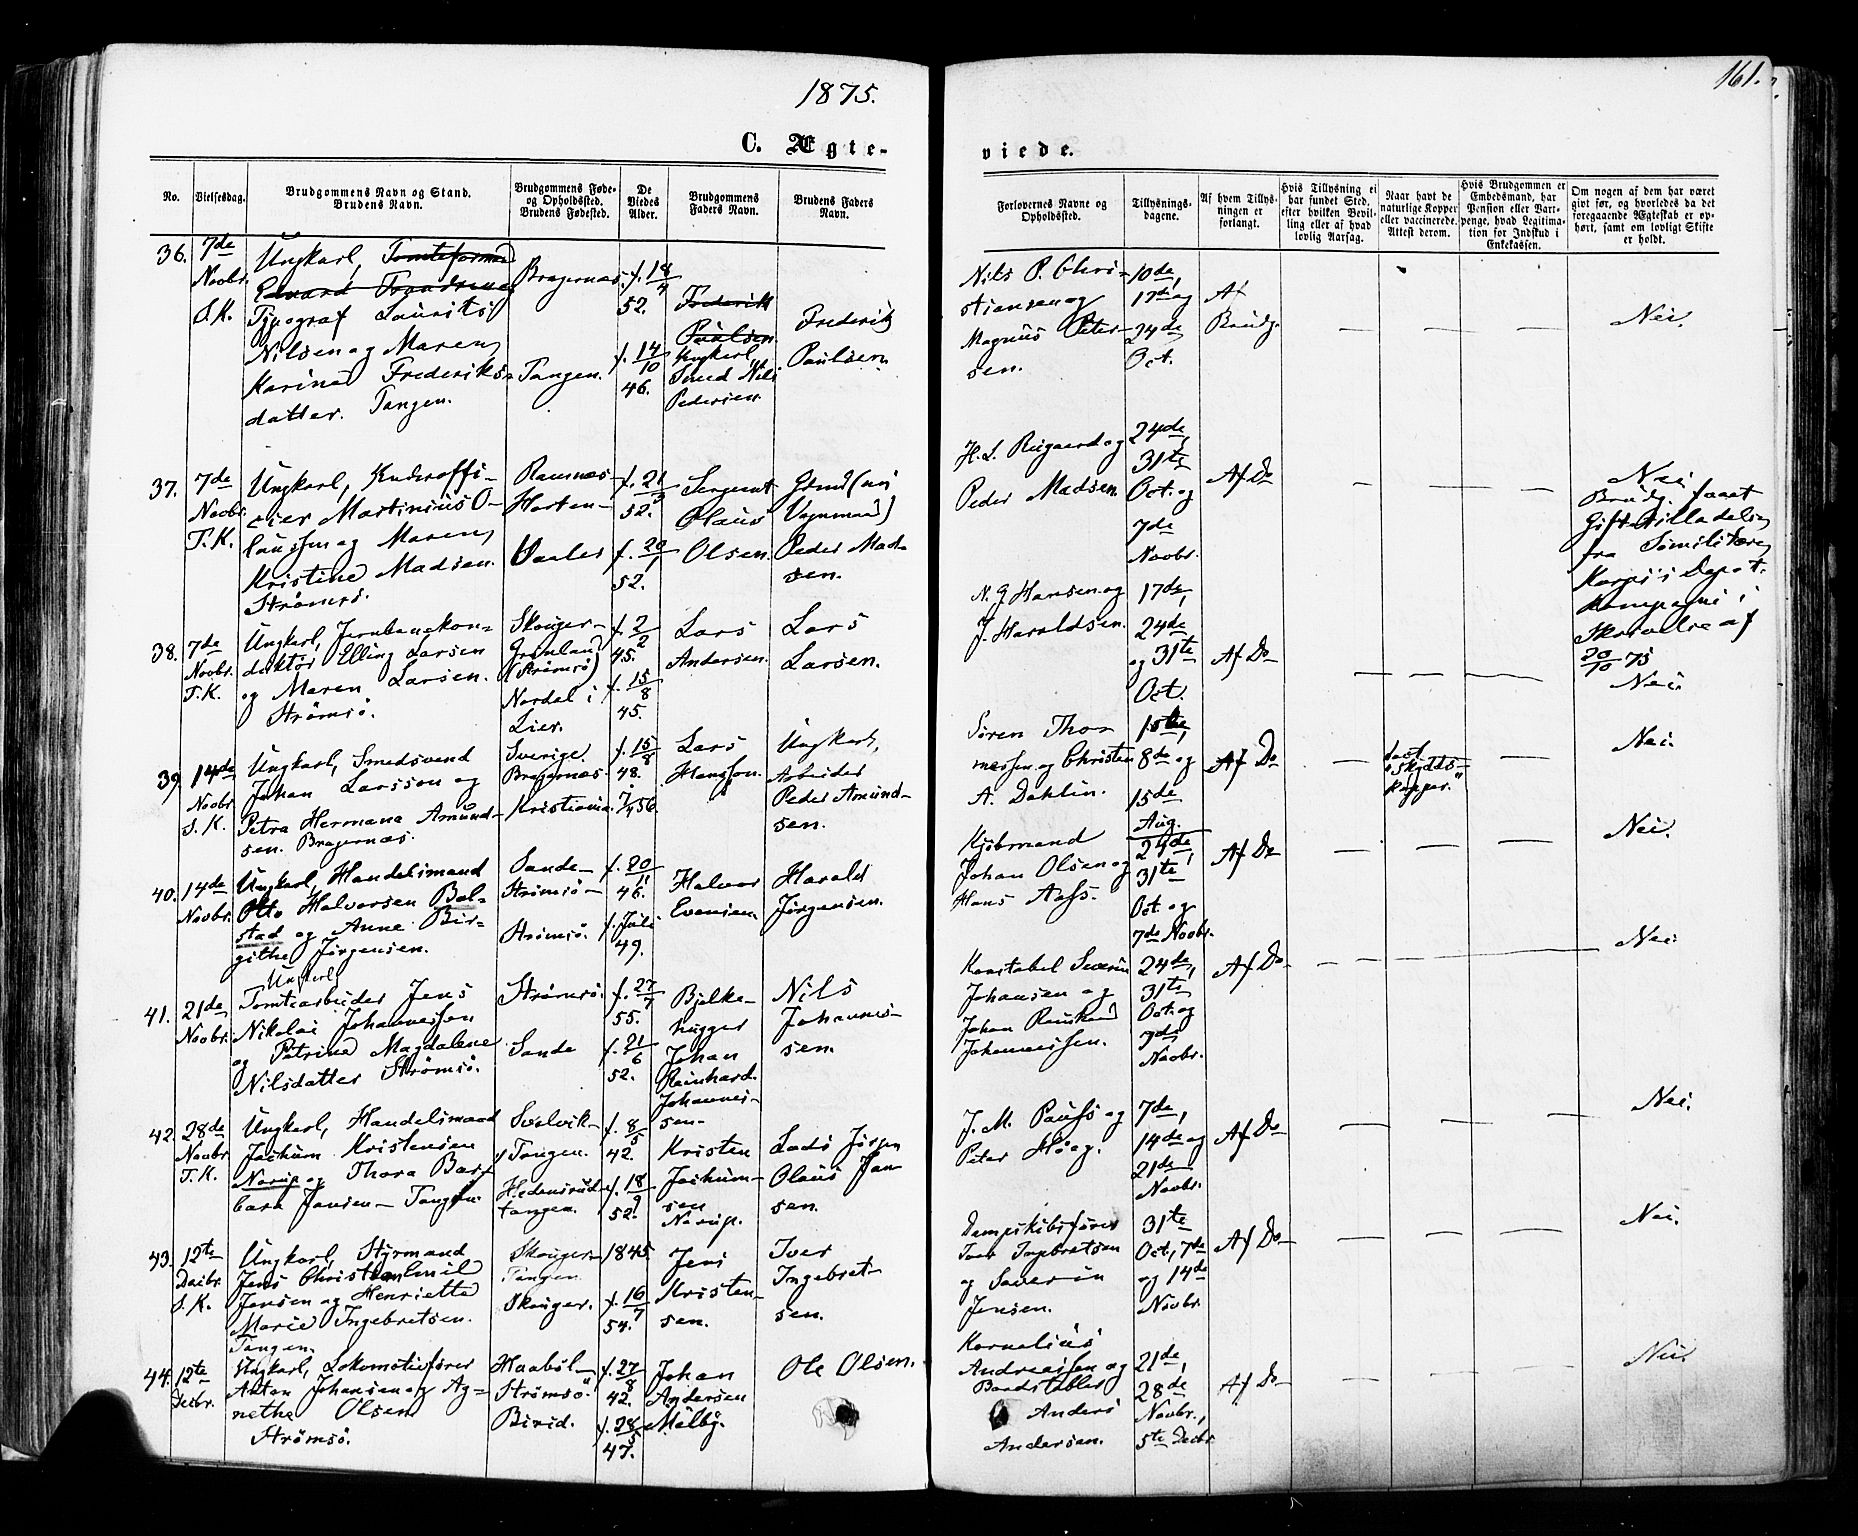 1875.
161.
C. Ægte-
viede.
No.
Vielsesdag.
Brudgommens Navn og Stand.
Brudens Navn.
Brudgommens Føde-
og Opholdssted.
Brudens Fødested.
De
Viedes
Alder.
Brudgommens
Faders Navn.
Brudens Faders
Navn.
Forlovernes Navne og
Opholdssted.
Tillysnings-
dagene.
Af hvem Tillys-
ningen er
forlangt.
Hvis Tillysning ei
har fundet Sted,
efter hvilken Bevil-
ling eller af hvad
lovlig Aarsag.
Naar havt de
naturlige Kopper
eller vaccinerede.
Attest derom.
Hvis Brudgommen er
Embedsmand, har
Pension eller Vart-
penge, hvad Legitima-
tion for Indskud i
Enkekassen.
Om nogen af dem har været
givt før, og hvorledes da det
foregaaende Ægteskab er op-
hørt, samt om lovligt Skifte
er holdt.
36.
7de
Novbr.
S.K.
Ungkarl, Tomteformand
Edvard Frandsen
Typograf Laurits
Nilsen og Maren
Karine Frederiks-
datter. Tangen.
Bragernæs.
Tangen.
f. 18/4
52.
f. 14/10
46.
Frederik
Paulsen
Ungkarl,
Smed Nils
Pedersen.
Frederik
Paulsen.
Nils P. Chri-
stiansen og
Magnus Peter-
sen.
10de,
17de og
24de
Oct.
Af
Brudg.
— — —
Nei.
37.
7de
Novbr.
T.K.
Ungkarl, Underoffi-
cier Martinius O-
laussen og Maren
Kristine Madsen.
Strømsø.
Ramnæs
Horten-
Vaaler
f. 21/3
52.
f. 20/1
52.
Sergeant
Olaus
Olsen.
Peder Mad-
sen.
H. L. Riigaard og
Peder Madsen.
24de,
31te
Oct. og
7de
Novbr.
Af Do
— — —
Nei
Brudg. faaet
Gift-tilladelse
fra Sømilitære
Korps's Depot-
kompagni i
Skrivelse af
20/10 75
38.
7de
Novbr.
T.K.
Ungkarl, Jernbanekon-
duktør Elling Larsen
og Maren Larsen.
Strømsø.
Skouger-
Grønland
(Strømsø)
Nordal i
Lier.
f. 2/2
45.
f. 15/8
45.
Lars
Andersen.
Lars
Larsen.
N. G Hansen og
J. Haraldsen.
17de,
24de
og 31te
Oct.
Af Do
— — —
Nei.
39.
14de
Novbr.
S.K.
Ungkarl, Smedsvend
Johan Larsson og
Petra Hermana Amund-
sen. Bragernæs.
Sverige.
Bragernæs.
Kristiania.
f. 15/8
48.
7/4 56.
Lars
Hansson.
Ungkarl,
Arbeider
Peder Amund-
sen.
Søren Thor
messen og Christen
A. Dahlin.
1ste,
8de og
15de
Aug.
Af Do
—
havt
"Skydds-
kopper."
—
Nei.
40.
14de
Novbr.
Ungkarl, Handelsmand
Otto Halvorsen Bol-
stad og Anne Bir-
githe Jørgensen.
Sande-
Strømsø-
Strømsø.
f. 20/11
46.
f. Juli
49.
Halvor
Evensen.
Harald
Jørgensen.
Kjøbmand
Johan Olsen og
Hans Aass.
24de,
31te
Oct. og
7de Novbr.
Af Do
— — —
Nei.
41.
21de
Novbr.
Ungkarl
Tomtearbeider Jens
Nikolai Johannessen
og Petrine Magdalene
Nilsdatter Strømsø.
Strømsø.
Sande
f. 27/7
55.
f. 21/6
52.
Bjelke-
hugger
Johan
Reinhard
Johannes-
sen.
Nils
Johannes-
sen.
Konstabel Severin
Johansen og
Johan
Johannessen.
24de,
31te
Oct. og
7de
Novbr.
Af Do
— — —
Nei.
42.
28de
Novbr.
T.K.
Ungkarl, Handelsmand
Jochum Kristensen
Nørup og Thora Bar-
bara Jansen - Tangen.
Svelvik-
Tangen.
Hedensrud-
tangen.
f. 8/5
42.
f. 18/9
52.
Kristen
Jochum-
sen
Nørup.
Lods Jørgen
Olaus Jan
sen.
J. M. Pauss og
Peter Høeg.
7de,
14de og
21de
Novbr.
Af Do
— — —
Nei.
43.
12te
Decbr.
S.K.
Ungkarl, Styrmand
Jens Christian Emil
Jensen og Henriette
Marie Ingebretsen.
Tangen.
Skouger-
Tangen
Skouger.
1845.
f. 16/7
54.
Jens
Kristen-
sen.
Iver
Ingebret-
sen.
Dampskibsfører
Iver Ingebretsen
og Severin
Jensen.
31te
Oct., 7de
og 14de
Novbr.
Af Do
— — —
Nei.
44.
12te
Decbr.
Ungkarl, Lokomotivfører
Anton Johansen og Ag-
nethe Olsen
Strømsø.
Haabøl-
Strømsø.
Birid.
f. 27/8
42.
f. 28/5
47.
Johan
Andersen
Mølby.
Ole Olsen.
Kornelius
Andreassen og
Bordstabler
Anders
Andersen.
21de,
28de
Novbr.,
5te Decbr
Af Do
— — —
Nei.